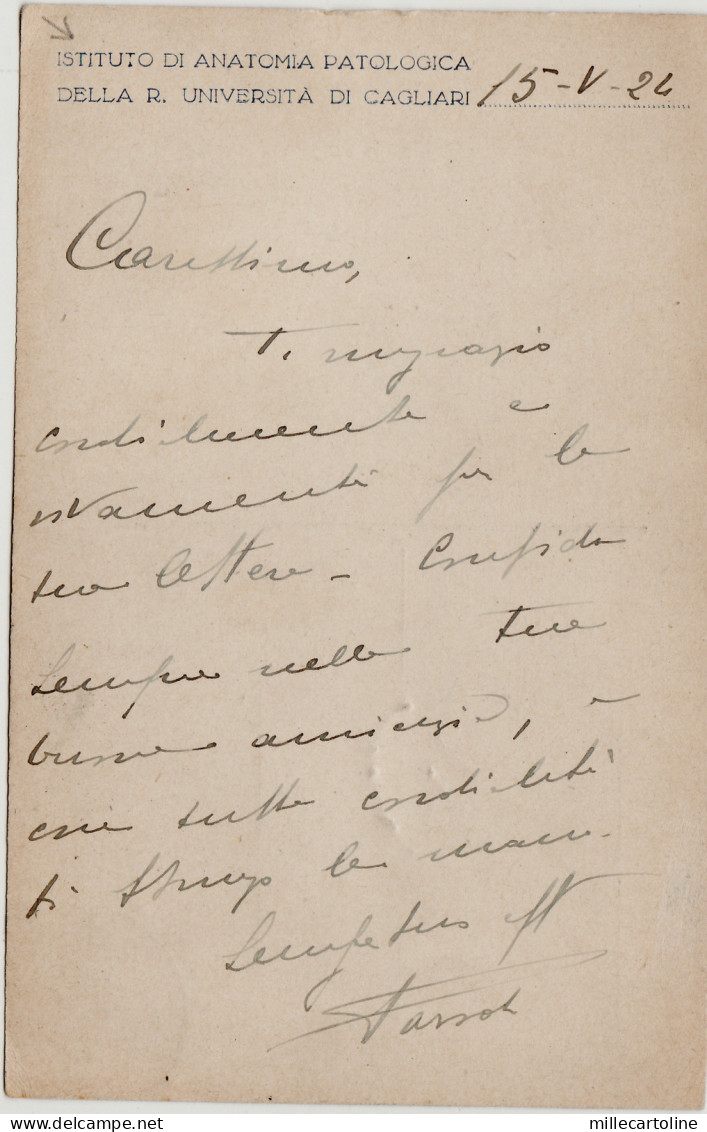 ISTITUTO DI ANATOMIA PATOLOGICA
DELLA R. UNIVERSITÀ DI CAGLIARI 15-V-24
Carissimo,
Ti ringrazio
cordialmente e
vivamente per la
tua lettera - Confido
sempre nella tua
buona amicizia, e
con tutta cordialità
ti stringo la mano.
aff
millecartoline